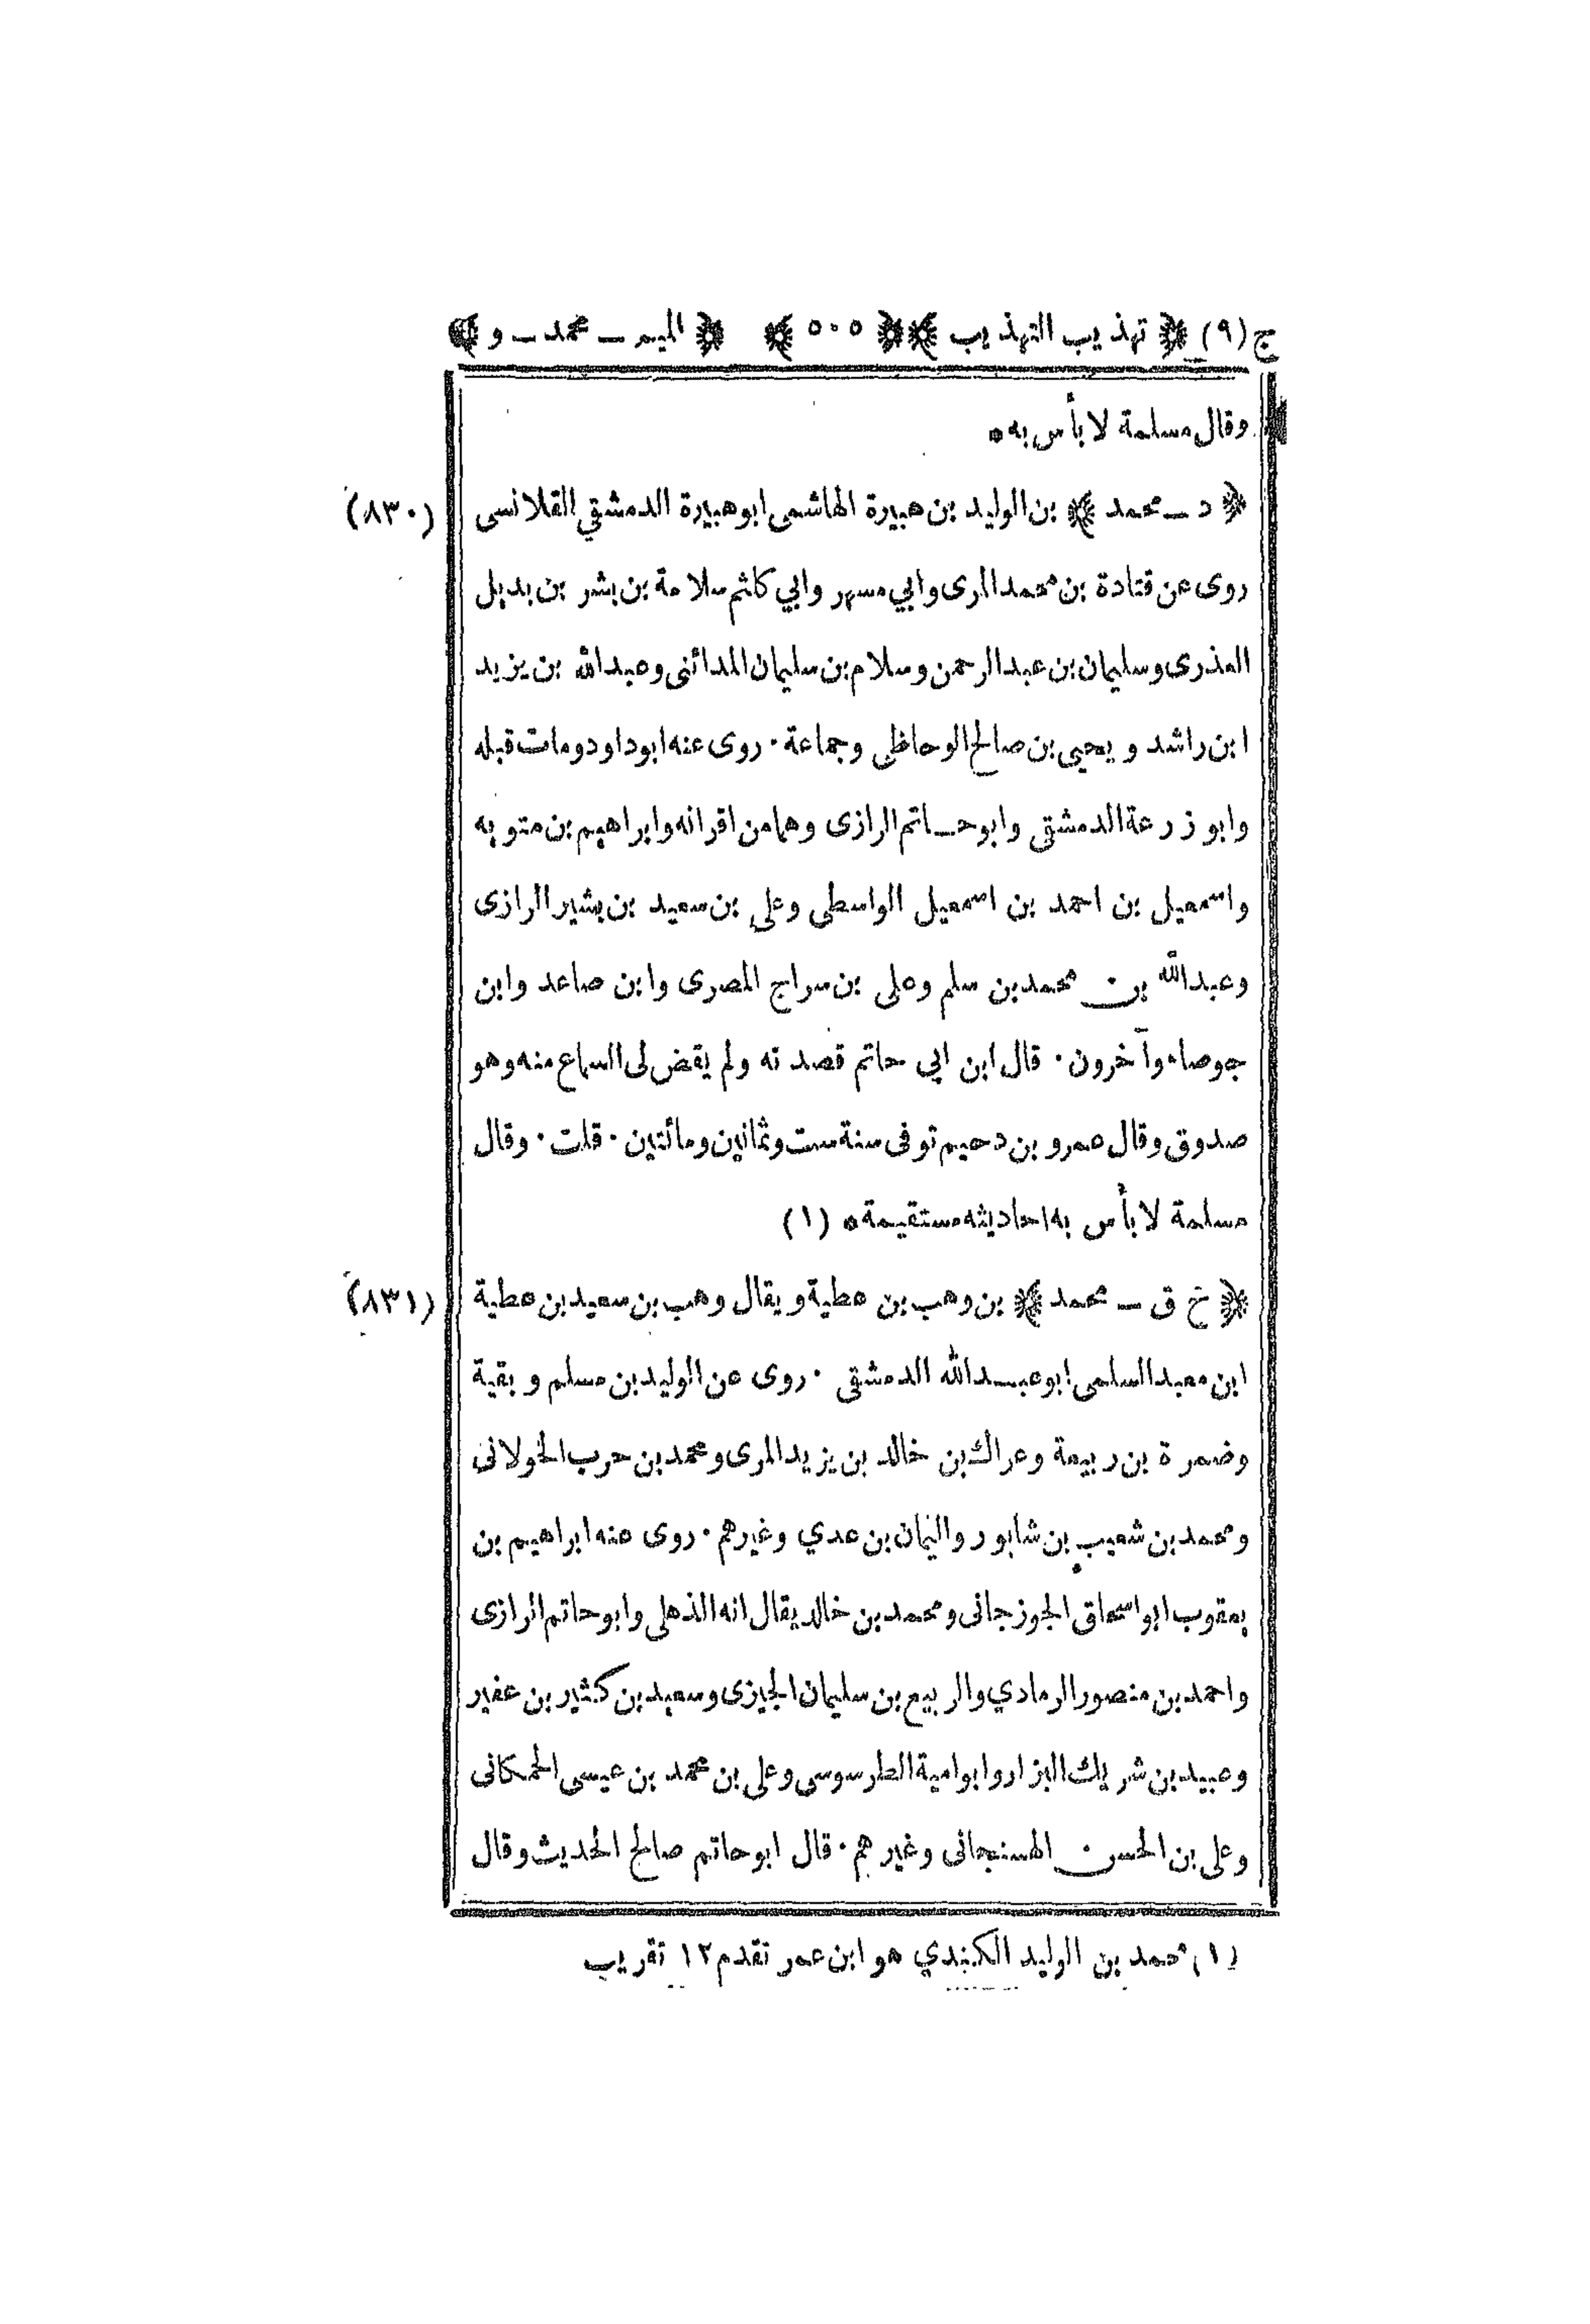 ج (٩) ﴿ تهذيب التهذيب ﴾ ﴿ ٥٠٥ ﴾ ﴿ الميم ـ محمد ـ و ﴾
وقال مسلمة لا بأس به ٠
(٨٣٠) ﴿ د ـ محمد ﴾ بن الوليد بن هبيرة الهاشمى ابو هبيرة الدمشقي القلانسى
روى عن قتادة بن محمد المرى وابي مسهر وابي كلثم سلامة بن بشر بن بديل
العذرى وسليمان بن عبد الرحمن وسلام بن سليمان المدائنى وعبد الله بن يزيد
ابن راشد ويحيى بن صالح الوحاظى وجماعة ٠ روى عنه ابو داود ومات قبله
وابو زرعة الدمشقى وابو حاتم الرازى وهما من اقرانه وابراهيم بن متويه
واسمعيل بن احمد بن اسمعيل الواسطى وعلى بن سعيد بن بشير الرازى
وعبد الله بن محمد بن سلم وعلى بن سراج المصرى وابن صاعد وابن
جوصاء وآخرون ٠ قال ابن ابي حاتم قصدته ولم يقض لى السماع منه وهو
صدوق وقال عمرو بن دحيم توفى سنة ست وثمانين ومائتين ٠ قلت ٠ وقال
مسلمة لا بأس به احاديثه مستقيمة ٠ (١)
(٨٣١) ﴿ خ ق ـ محمد ﴾ بن وهب بن عطية ويقال وهب بن سعيد بن عطية
ابن معبد السلمى ابو عبد الله الدمشقى ٠ روى عن الوليد بن مسلم وبقية
وضمرة بن ربيعة وعراك بن خالد بن يزيد المرى ومحمد بن حرب الخولانى
ومحمد بن شعيب بن شابور واليمان بن عدي وغيرهم ٠ روى عنه ابراهيم بن
يعقوب ابو اسحاق الجوزجانى ومحمد بن خالد يقال انه الذهلى وابو حاتم الرازى
واحمد بن منصور الرمادي والربيع بن سليمان الجيزى وسعيد بن كثير بن عفير
وعبيد بن شريك البزار وابو امية الطرسوسى وعلى بن محمد بن عيسى الحكانى
وعلى بن الحسن الهسنجانى وغيرهم ٠ قال ابو حاتم صالح الحديث وقال
(١) محمد بن الوليد الكندي هو ابن عمر تقدم ١٢ تقريب